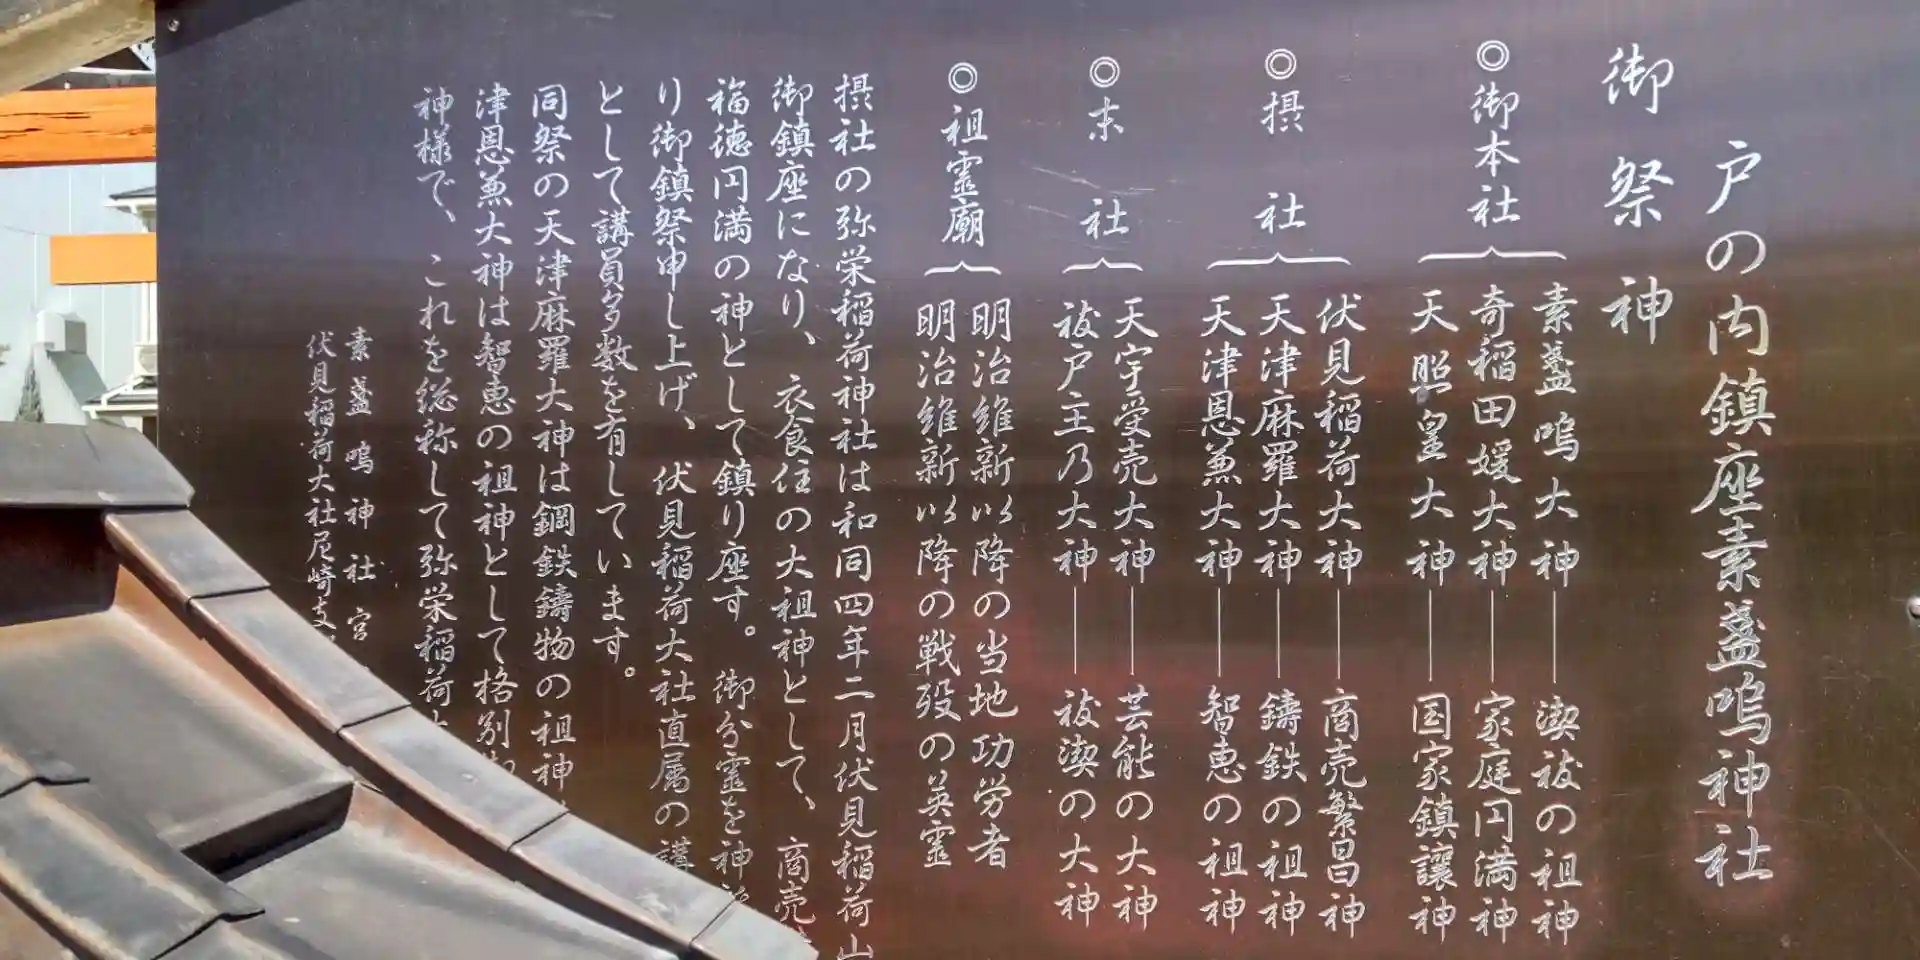 戸の内鎮座素盞嗚神社
御祭神
◎御本社
素盞嗚大神――禊祓の祖神
奇稲田媛大神――家庭円満神
天照皇大神――国家鎮護神
◎摂社
伏見稲荷大神――商売繁昌神
天津麻羅大神――鋳鉄の祖神
天津恩兼大神――智恵の祖神
◎末社
天宇受売大神――芸能の大神
祓戸主乃大神――祓禊の大神
◎祖霊廟
明治維新以降の当地功労者
明治維新以降の戦歿の英霊
摂社の弥栄稲荷神社は和同四年二月伏見稲荷山
御鎮座になり、衣食住の大祖神として、商売
福徳円満の神として鎮り座す。御分霊を神
り御鎮祭申し上げ、伏見稲荷大社直属の講
として講員多数を有しています。
同祭の天津麻羅大神は鋼鉄鋳物の祖神
津恩兼大神は智恵の祖神として格別
神様で、これを総称して弥栄稲荷
素盞嗚神社宮
伏見稲荷大社尼崎支